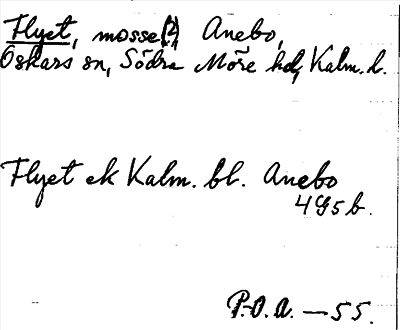 Flyet, mosse(?), Anebo,
Oskars sn, Södra Möre hd, Kalm. l.
Flyet ek Kalm. bl. Anebo
4G5b.
P.O.A. — 55.